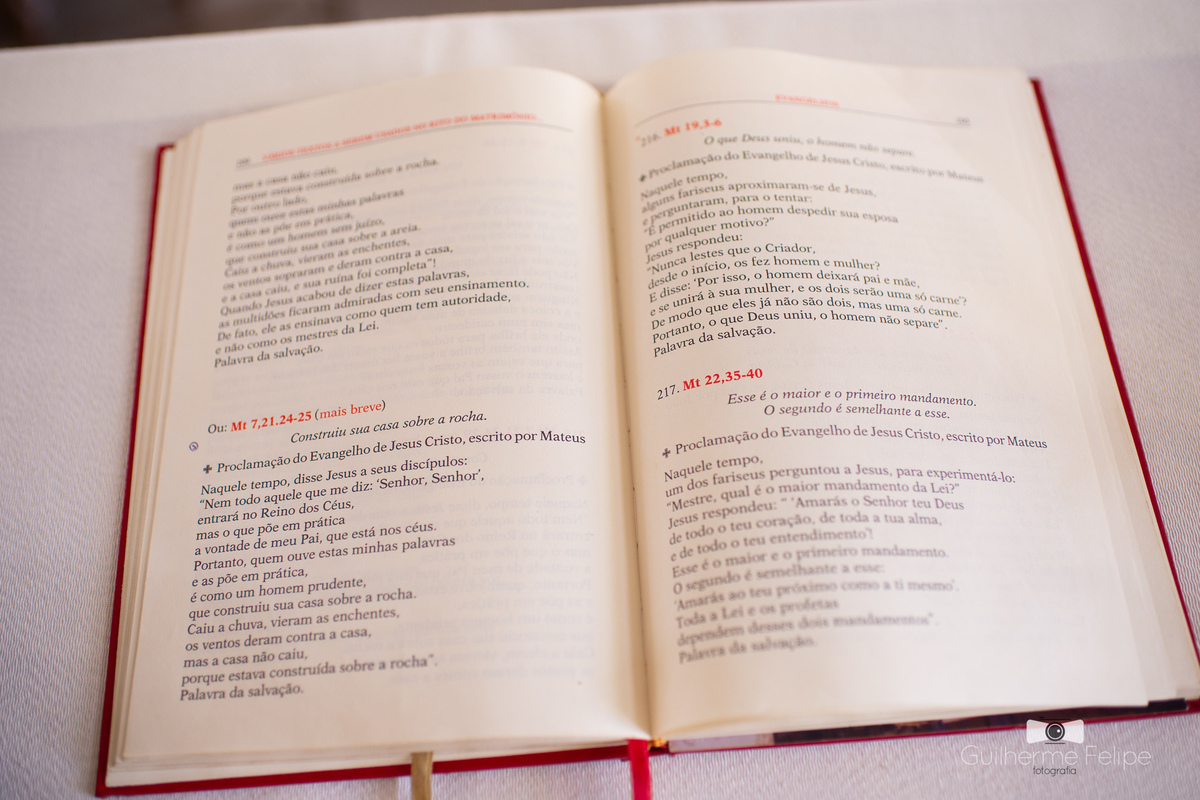 VÁRIOS TEXTOS A SEREM USADOS NO RITO DO MATRIMÔNIO
mas a casa não caiu,
porque estava construída sobre a rocha.
Por outro lado,
quem ouve estas minhas palavras
e não as põe em prática,
é como um homem sem juízo,
que construiu sua casa sobre a areia.
Caiu a chuva, vieram as enchentes,
os ventos sopraram e deram contra a casa,
e a casa caiu, e sua ruína foi completa"!
Quando Jesus acabou de dizer estas palavras,
as multidões ficaram admiradas com seu ensinamento.
De fato, ele as ensinava como quem tem autoridade,
e não como os mestres da Lei.
Palavra da salvação.
Ou: Mt 7,21.24-25 (mais breve)
Construiu sua casa sobre a rocha.
✚ Proclamação do Evangelho de Jesus Cristo, escrito por Mateus
Naquele tempo, disse Jesus a seus discípulos:
"Nem todo aquele que me diz: 'Senhor, Senhor',
entrará no Reino dos Céus,
mas o que põe em prática
a vontade de meu Pai, que está nos céus.
Portanto, quem ouve estas minhas palavras
e as põe em prática,
é como um homem prudente,
que construiu sua casa sobre a rocha.
Caiu a chuva, vieram as enchentes,
os ventos deram contra a casa,
mas a casa não caiu,
porque estava construída sobre a rocha".
Palavra da salvação.
EVANGELHOS
216. Mt 19,3-6
O que Deus uniu, o homem não separe.
✚ Proclamação do Evangelho de Jesus Cristo, escrito por Mateus
Naquele tempo,
alguns fariseus aproximaram-se de Jesus,
e perguntaram, para o tentar:
"É permitido ao homem despedir sua esposa
por qualquer motivo?"
Jesus respondeu:
"Nunca lestes que o Criador,
desde o início, os fez homem e mulher?
E disse: 'Por isso, o homem deixará pai e mãe,
e se unirá à sua mulher, e os dois serão uma só carne'?
De modo que eles já não são dois, mas uma só carne.
Portanto, o que Deus uniu, o homem não separe".
Palavra da salvação.
217. Mt 22,35-40
Esse é o maior e o primeiro mandamento.
O segundo é semelhante a esse.
✚ Proclamação do Evangelho de Jesus Cristo, escrito por Mateus
Naquele tempo,
um dos fariseus perguntou a Jesus, para experimentá-lo:
"Mestre, qual é o maior mandamento da Lei?"
Jesus respondeu: " 'Amarás o Senhor teu Deus
de todo o teu coração, de toda a tua alma,
e de todo o teu entendimento'!
Esse é o maior e o primeiro mandamento.
O segundo é semelhante a esse:
'Amarás ao teu próximo como a ti mesmo'.
Toda a Lei e os profetas
dependem desses dois mandamentos".
Palavra da salvação.
Guilherme Felipe
fotografia